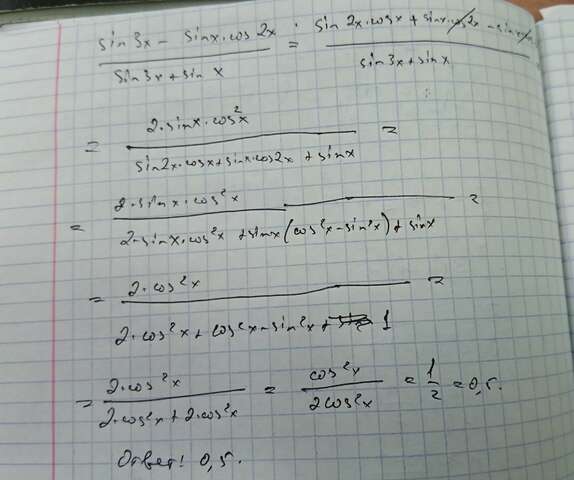 (sin3x - sinx·cos2x)/(sin3x + sinx) = (sin2x·cosx + sinx·cos2x - sinx)/(sin3x + sinx)
= (2·sinx·cos²x)/(sin2x·cosx + sinx·cos2x + sinx) =
= (2·sinx·cos²x)/(2·sinx·cos²x + sinx(cos²x - sin²x) + sinx) =
= (2·cos²x)/(2·cos²x + cos²x - sin²x + 1) =
= (2·cos²x)/(2·cos²x + 2·cos²x) = (cos²x)/(2cos²x) = 1/2 = 0,5.
Ответ: 0,5.